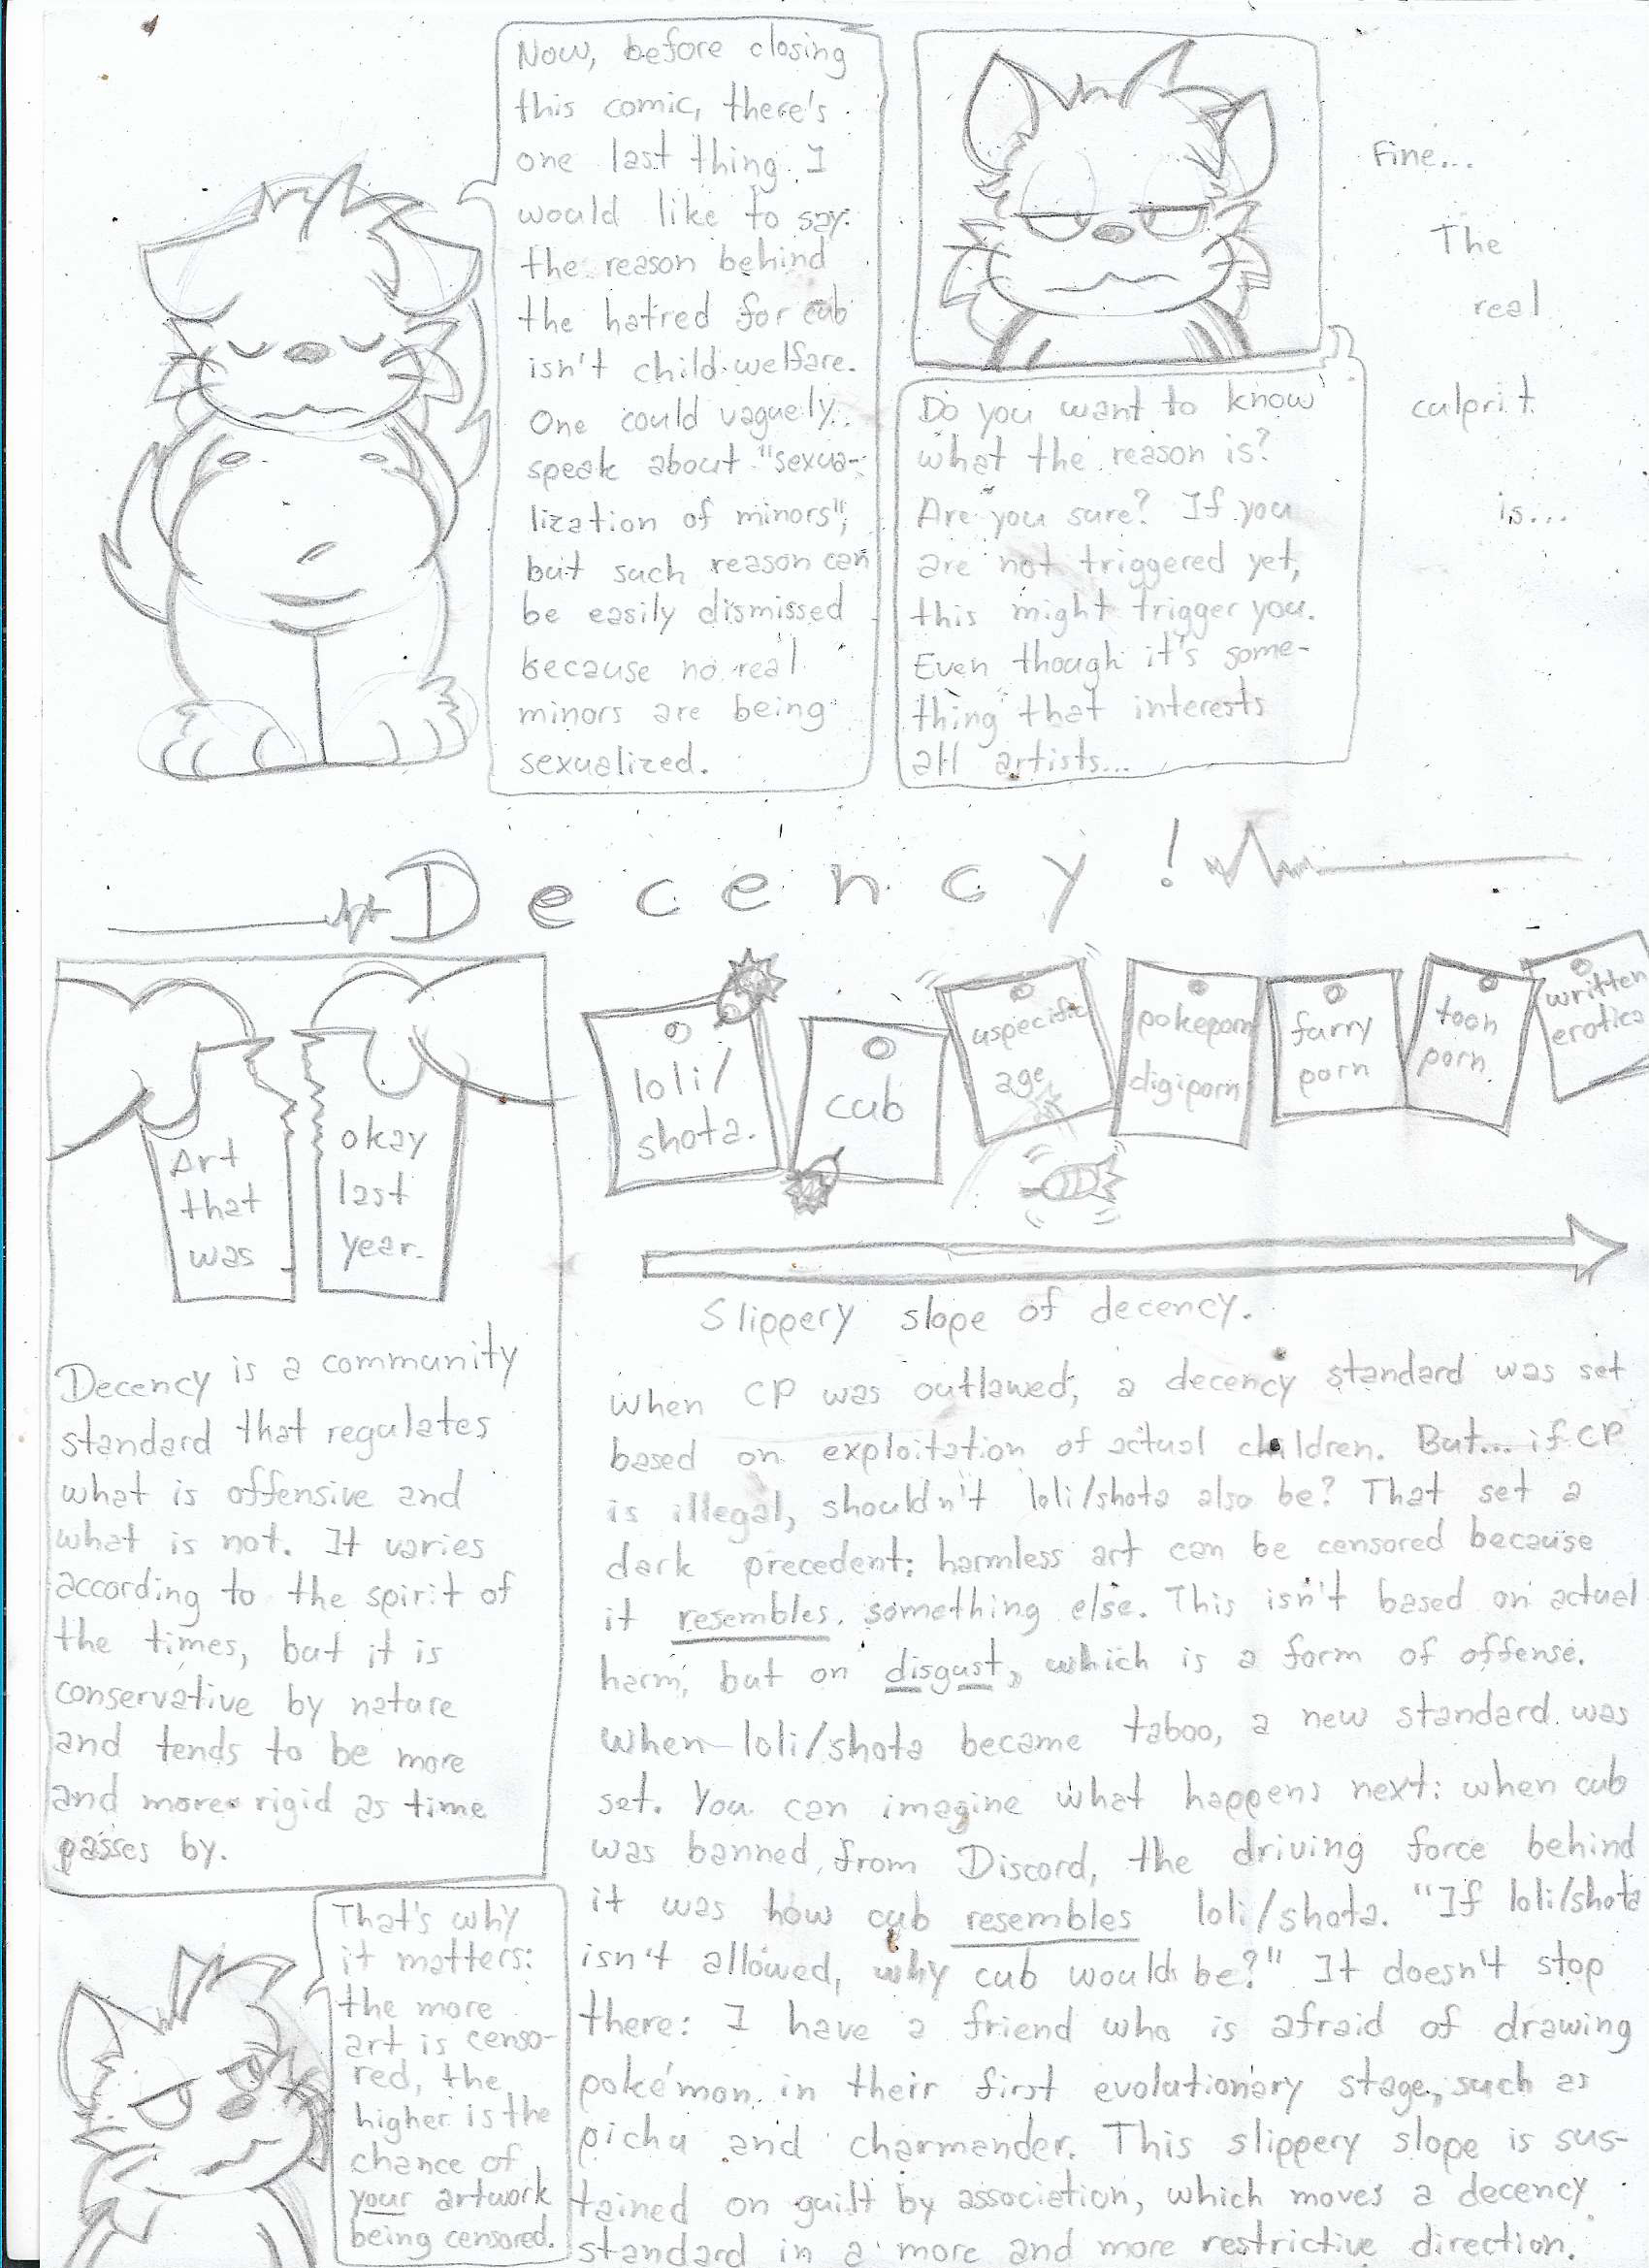 Now, before closing
this comic, there's
one last thing I
would like to say:
the reason behind
the hatred for cub
isn't child welfare.
One could vaguely
speak about "sexua-
lization of minors",
but such reason can
be easily dismissed
because no real
minors are being
sexualized.
Do you want to know
what the reason is?
Are you sure? If you
are not triggered yet,
this might trigger you.
Even though it's some-
thing that interests
all artists...
Fine...
The
real
culprit
is...
Decency!
Art
that
was
okay
last
year.
Decency is a community
standard that regulates
what is offensive and
what is not. It varies
according to the spirit of
the times, but it is
conservative by nature
and tends to be more
and more rigid as time
passes by.
loli/
shota.
cub
uspecific
age
pokeporn
digiporn
furry
porn
toon
porn
written
erotica
Slippery slope of decency.
When CP was outlawed, a decency standard was set
based on exploitation of actual children. But... if CP
is illegal, shouldn't loli/shota also be? That set a
dark precedent: harmless art can be censored because
it resembles something else. This isn't based on actual
harm, but on disgust, which is a form of offense.
When loli/shota became taboo, a new standard was
set. You can imagine what happens next: when cub
was banned from Discord, the driving force behind
it was how cub resembles loli/shota. "If loli/shota
isn't allowed, why cub would be?" It doesn't stop
there: I have a friend who is afraid of drawing
pokémon in their first evolutionary stage, such as
pichu and charmander. This slippery slope is sus-
tained on guilt by association, which moves a decency
standard in a more and more restrictive direction.
That's why
it matters:
the more
art is censo-
red, the
higher is the
chance of
your artwork
being censored.